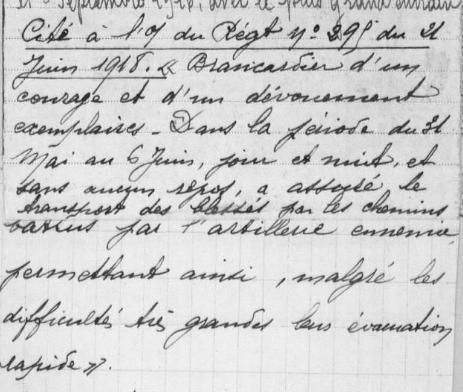 et Septembre 1918, avec le plus grand entrain
Cité à l'O/ du Régt n° 295 du 21
Juin 1918. « Brancardier d'un
courage et d'un dévouement
exemplaires - Dans la période du 31
Mai au 6 Juin, jour et nuit, et
sans aucun repos, a assuré le
transport des blessés par les chemins
battus par l'artillerie ennemie,
permettant ainsi, malgré les
difficultés très grandes leur évacuation
rapide ».